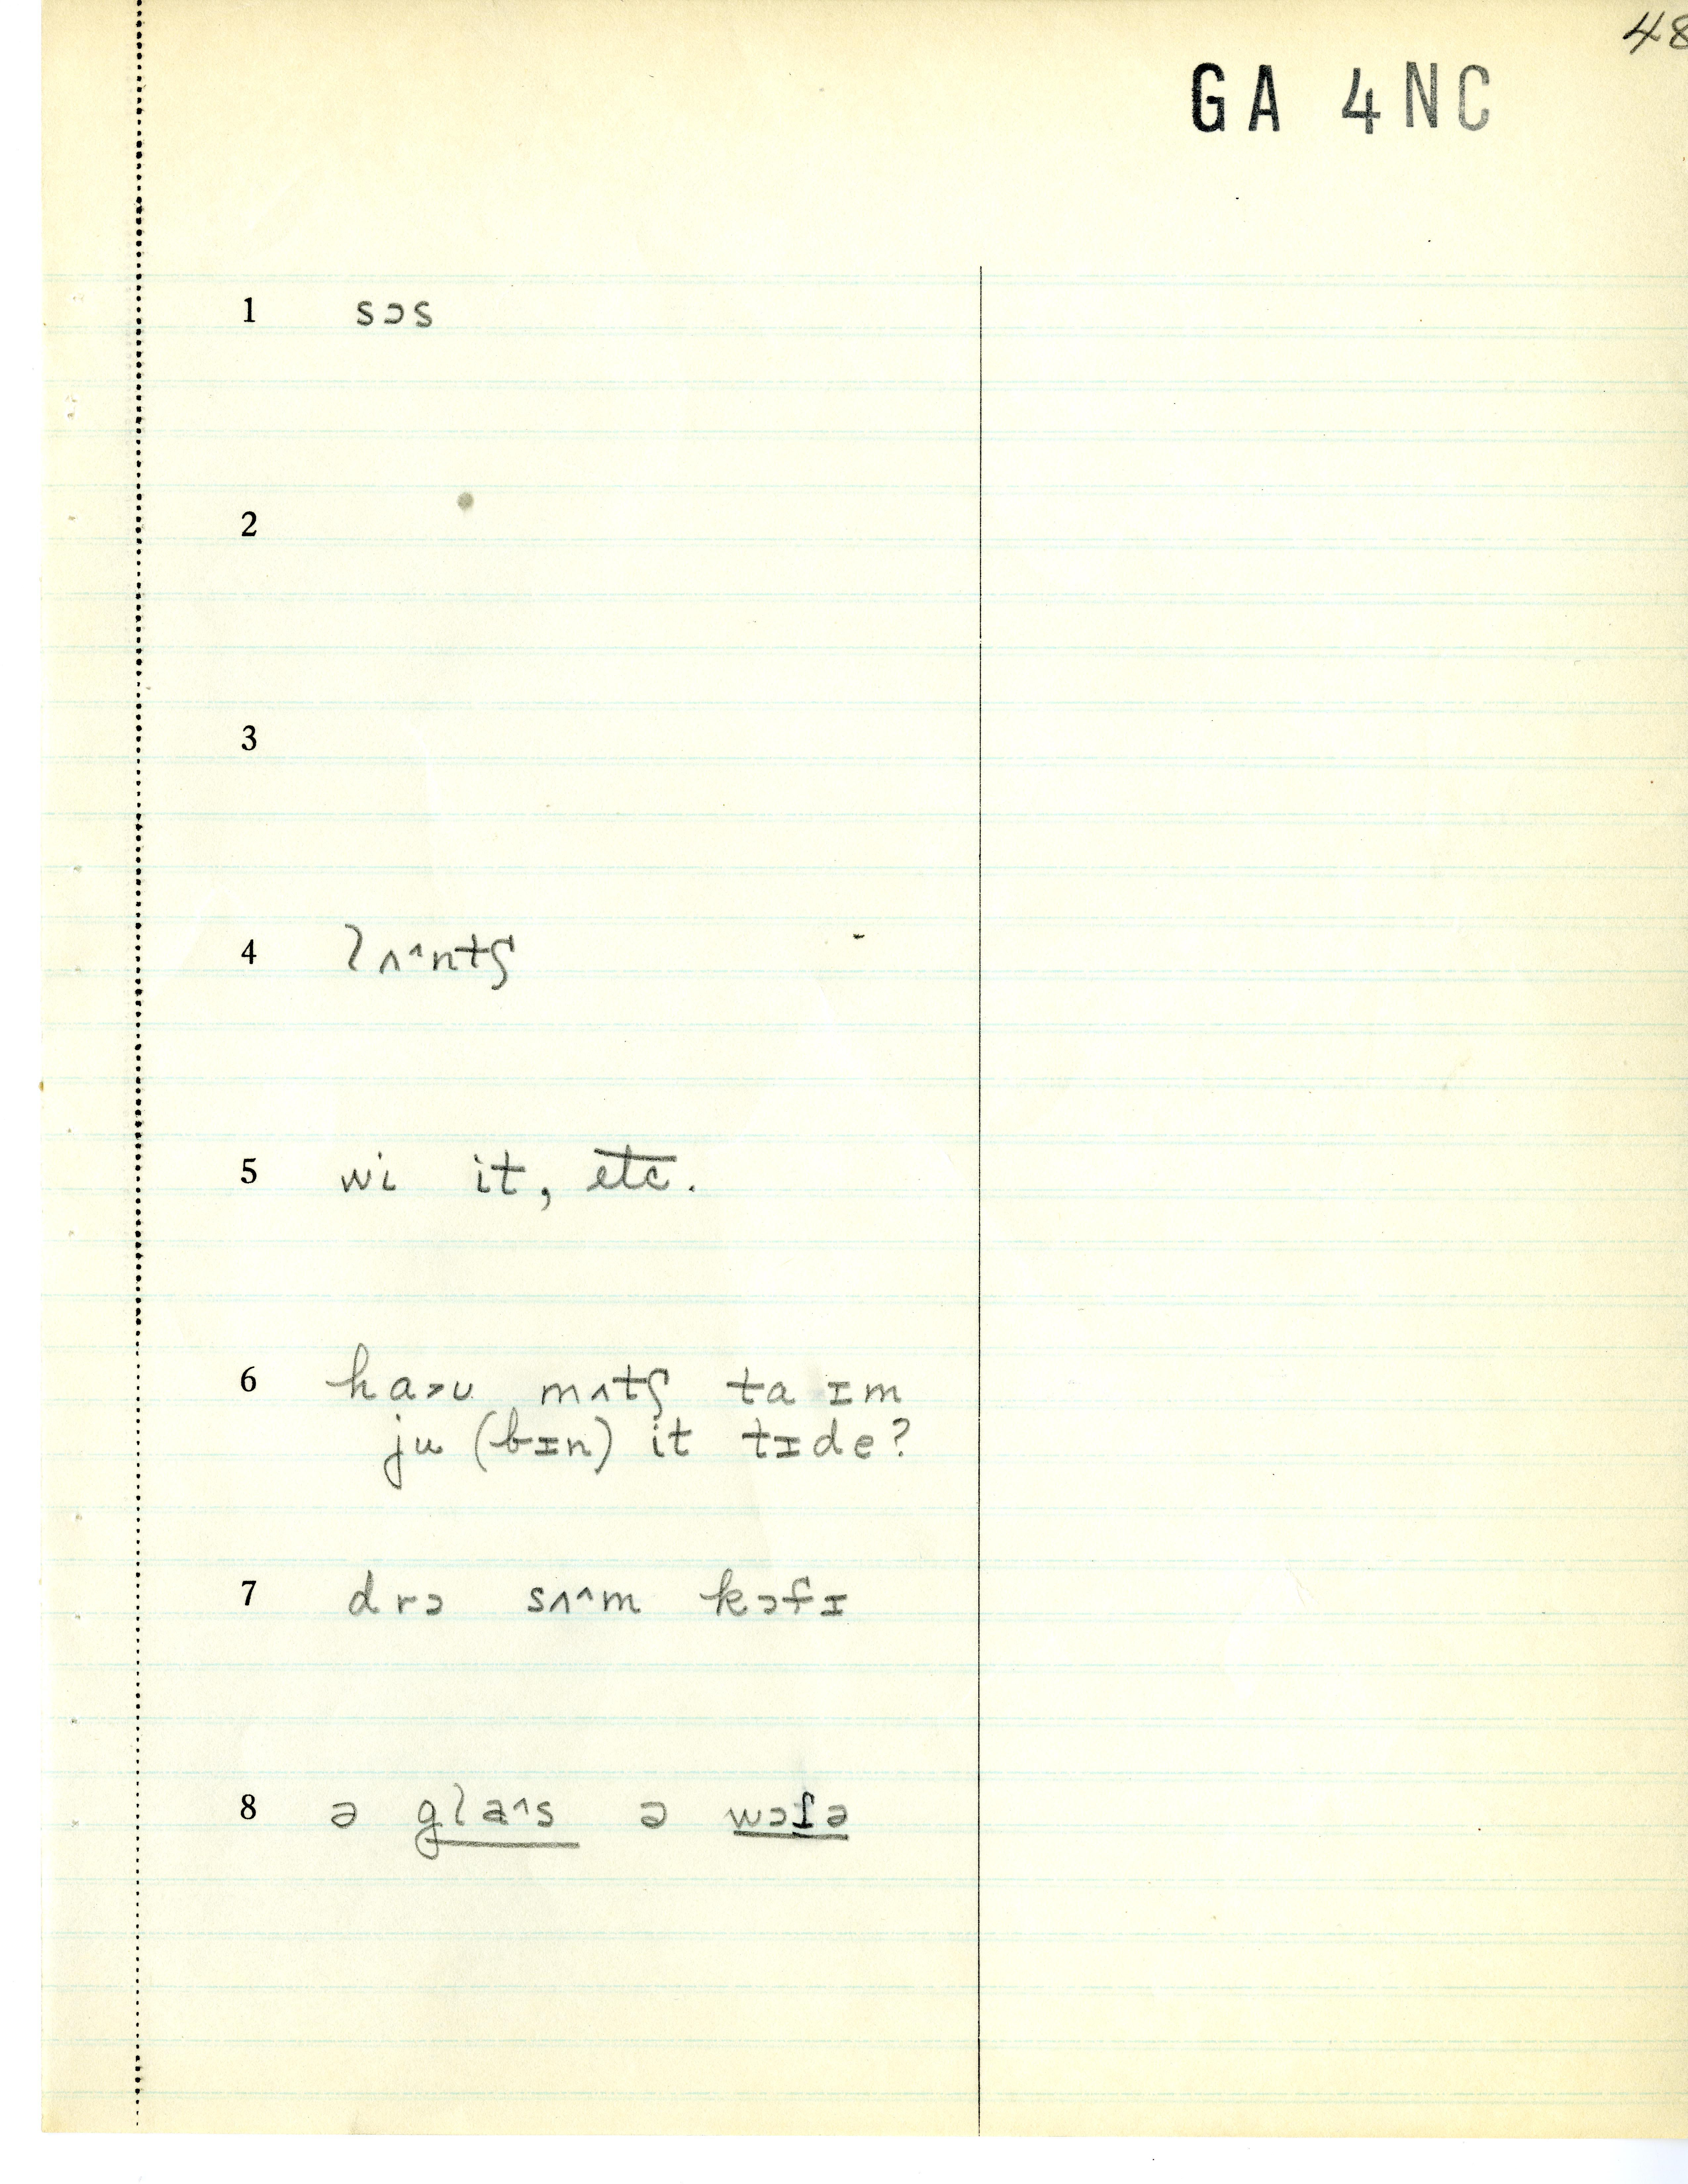 48
GA 4NC
1 sɔs
2
3
4 lʌ^ntʃ
5 wi it, etc.
6 ha>ʊ mʌtʃ ta ɪm
ju (bɪn) it tɪde?
7 drɔ sʌ^^m kɔfɪ
8 ə gla^s ə wɔɾə